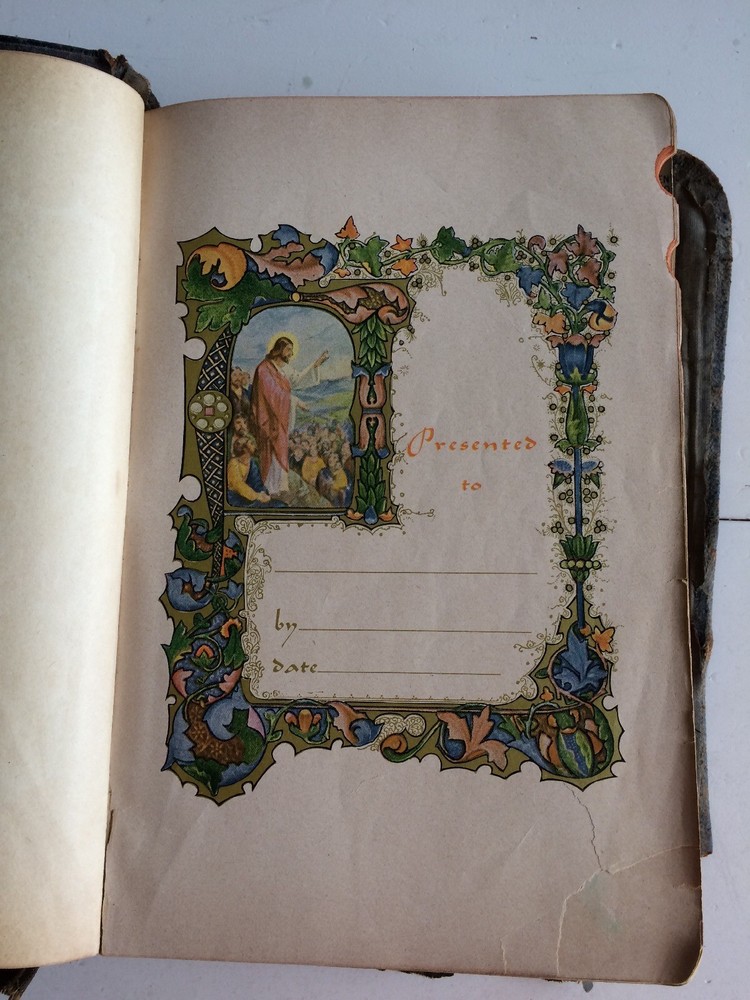 Presented
to
by
date